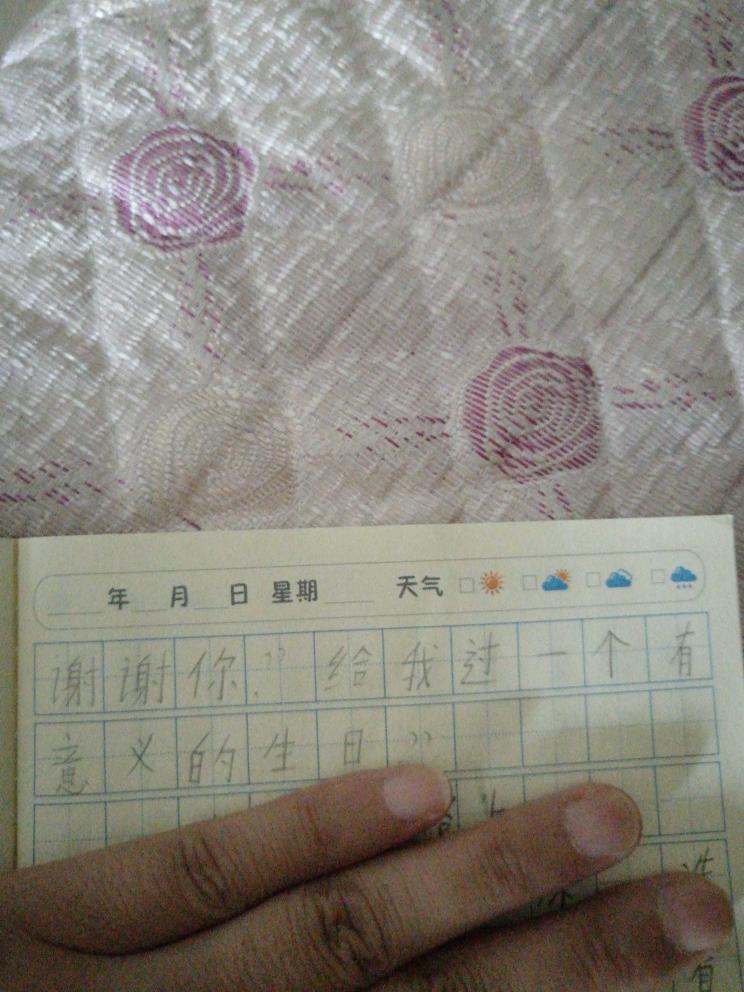 年 月 日 星期 天气
谢谢你.”给我过一个有
意义的生日”